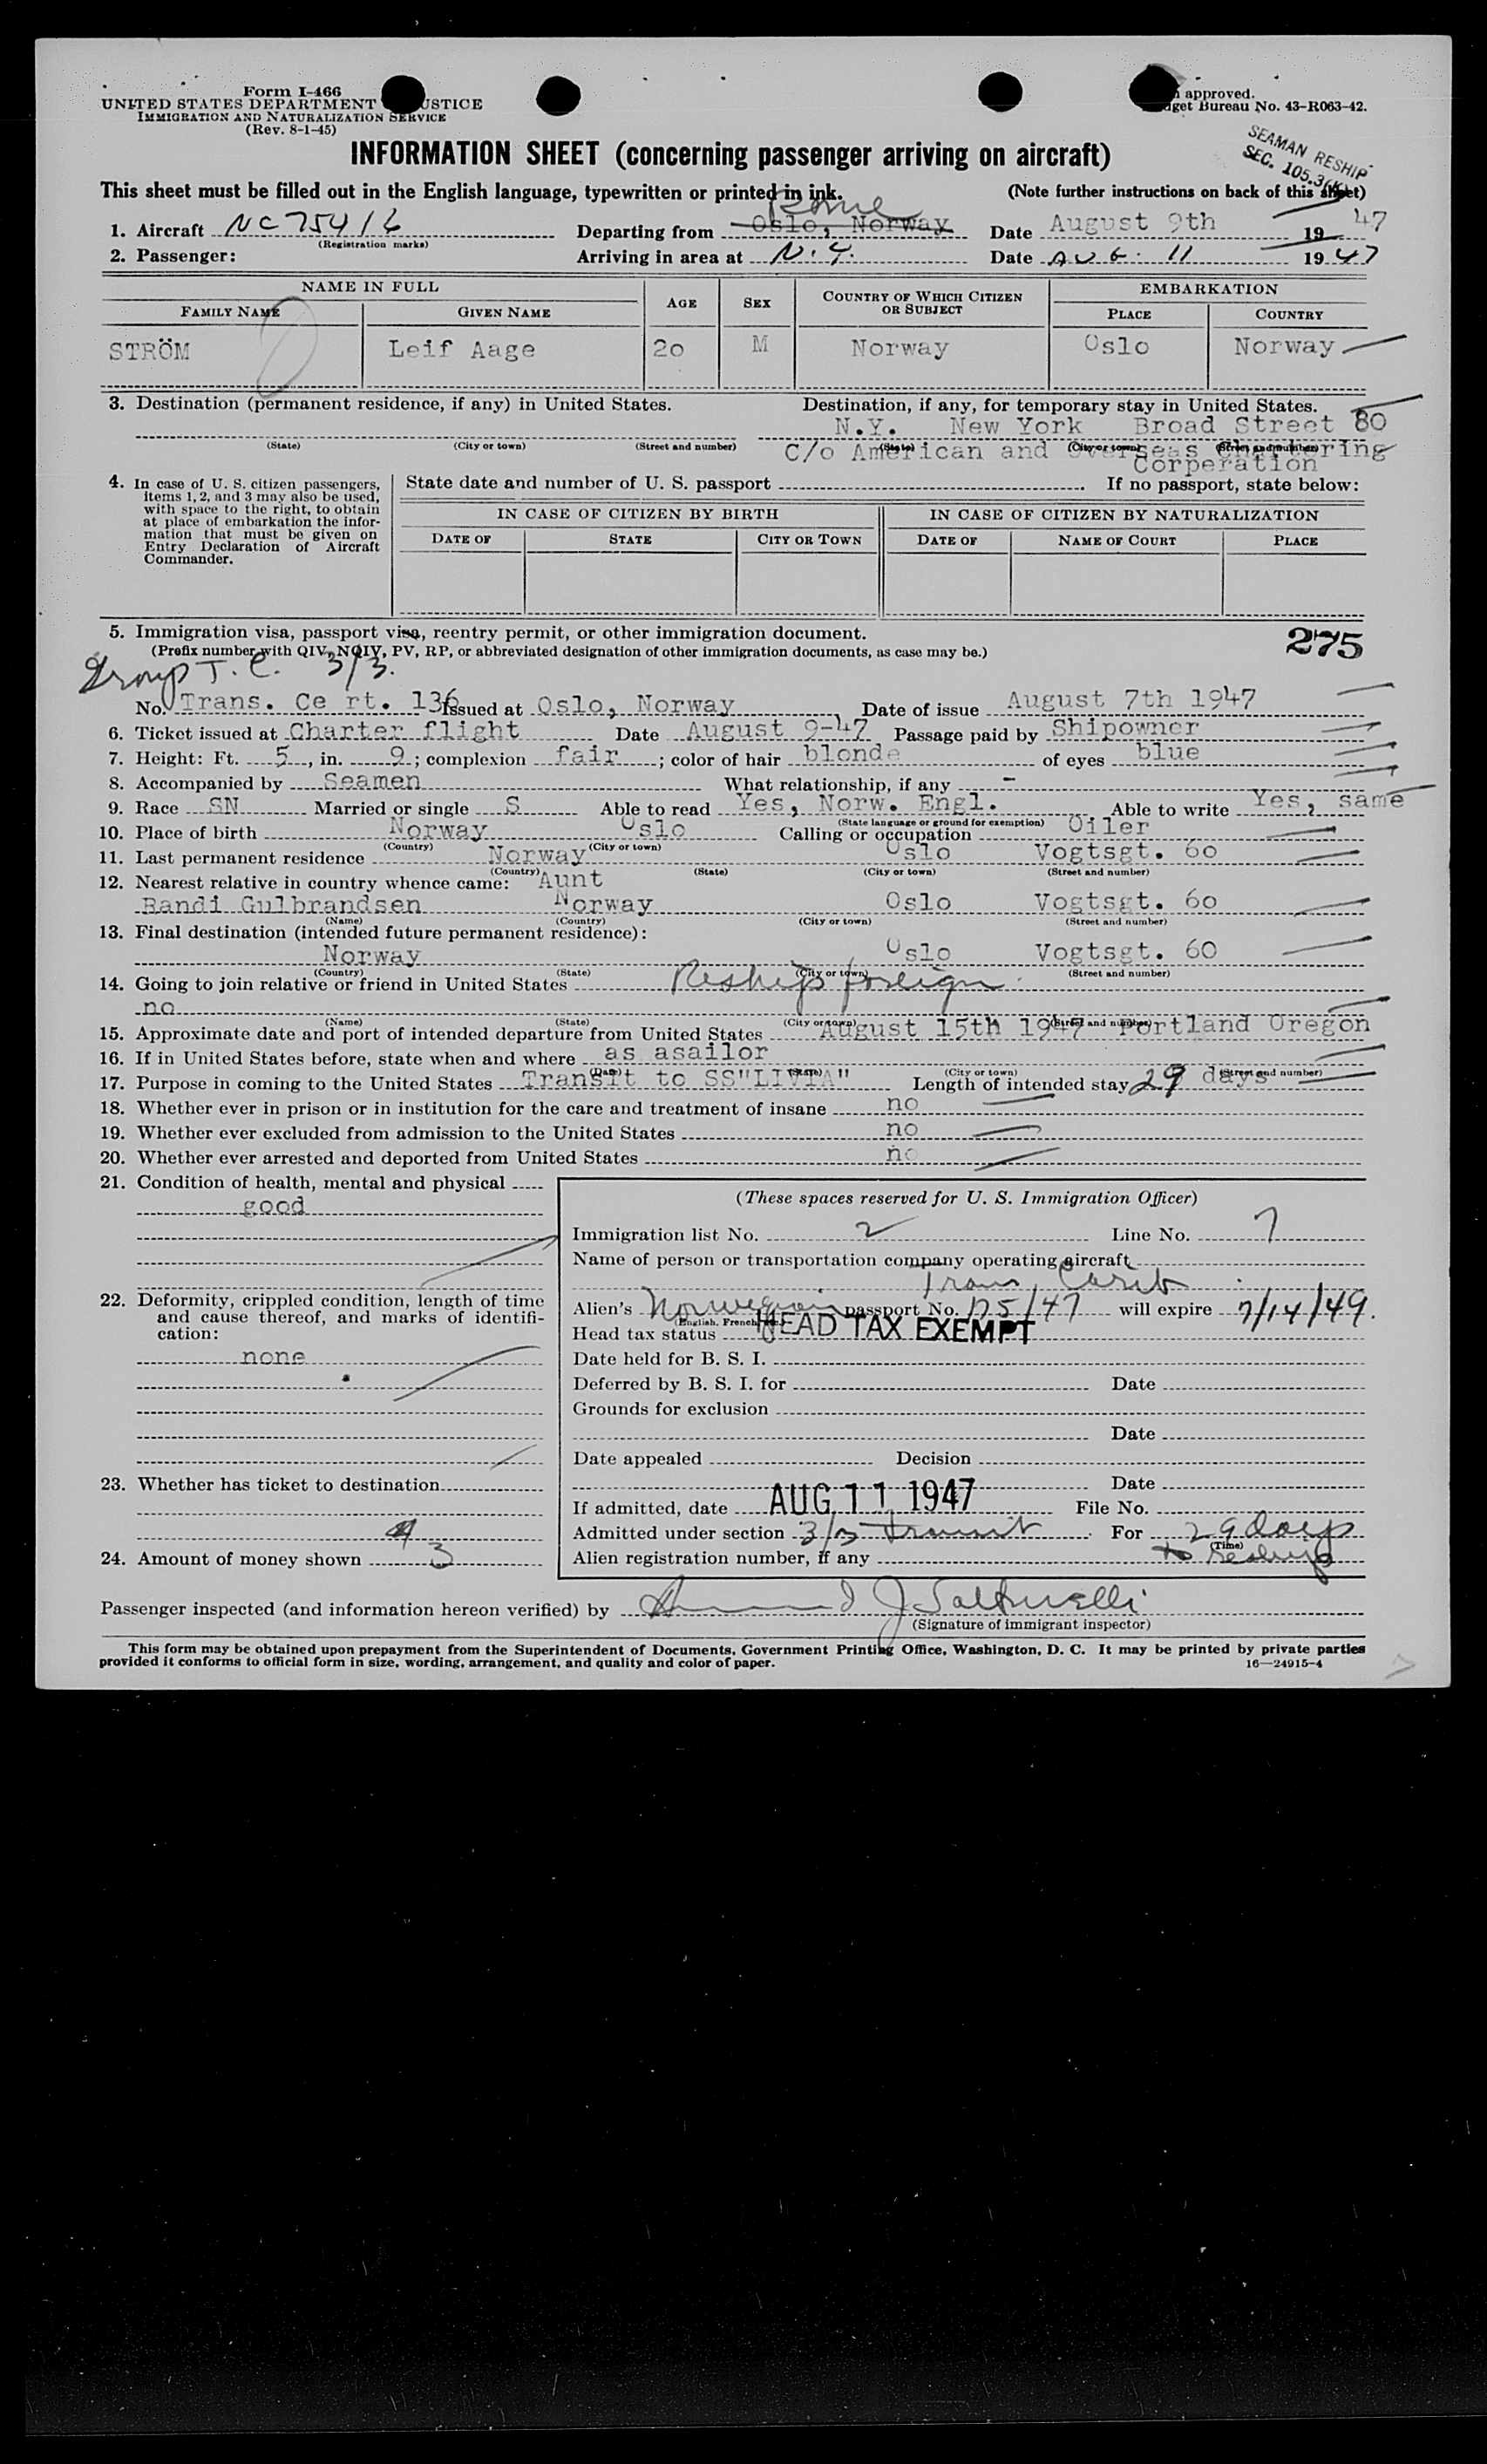 Form I-466
UNITED STATES DEPARTMENT USTICE
IMMIGRATION AND NATURALIZATION SERVICE
(Rev. 8-1-45)
approved.
get Bureau No. 43-R063-42.
SEAMAN RESHIP
SEC. 105.3
INFORMATION SHEET (concerning passenger arriving on aircraft)
This sheet must be filled out in the English language, typewritten or printed in ink. (Note further instructions on back of this sheet)
Rome
1. Aircraft NC75416 Departing from Oslo, Norway Date August 9th 1947
(Registration marks)
2. Passenger: Arriving in area at N.Y. Date AUG. 11 1947
NAME IN FULL AGE SEX COUNTRY OF WHICH CITIZEN OR SUBJECT EMBARKATION
FAMILY NAME GIVEN NAME PLACE COUNTRY
STRÖM Leif Aage 20 M Norway Oslo Norway
3. Destination (permanent residence, if any) in United States. Destination, if any, for temporary stay in United States.
N.Y. New York Broad Street 80
(State) (City or town) (Street and number) (State) (City or town) (Street and number)
C/o American and Overseas Chartering
Corperation
4. In case of U. S. citizen passengers, items 1, 2, and 3 may also be used, with space to the right, to obtain at place of embarkation the information that must be given on Entry Declaration of Aircraft Commander.
State date and number of U. S. passport If no passport, state below:
IN CASE OF CITIZEN BY BIRTH IN CASE OF CITIZEN BY NATURALIZATION
DATE OF STATE CITY OR TOWN DATE OF NAME OF COURT PLACE
5. Immigration visa, passport visa, reentry permit, or other immigration document.
275
(Prefix number with QIV, NQIV, PV, RP, or abbreviated designation of other immigration documents, as case may be.)
Group T.C. 3/3.
No. Trans. Ce rt. 136 Issued at Oslo, Norway Date of issue August 7th 1947
6. Ticket issued at Charter flight Date August 9-47 Passage paid by Shipowner
7. Height: Ft. 5, in. 9; complexion fair; color of hair blonde of eyes blue
8. Accompanied by Seamen What relationship, if any -
9. Race SN Married or single S Able to read Yes, Norw. Engl. Able to write Yes, same
(State language or ground for exemption)
10. Place of birth Norway Oslo Calling or occupation Oiler
(Country) (City or town)
11. Last permanent residence Norway Oslo Vogtsgt. 60
(Country) (State) (City or town) (Street and number)
12. Nearest relative in country whence came: Aunt
Randi Gulbrandsen Norway Oslo Vogtsgt. 60
(Name) (Country) (City or town) (Street and number)
13. Final destination (intended future permanent residence):
Norway Oslo Vogtsgt. 60
(Country) (State) (City or town) (Street and number)
14. Going to join relative or friend in United States Reship foreign
no
(Name) (State) (City or town) (Street and number)
15. Approximate date and port of intended departure from United States August 15th 1947 Portland Oregon
16. If in United States before, state when and where as asailor
(Date) (State) (City or town) (Street and number)
17. Purpose in coming to the United States Transit to SS"LIVIA" Length of intended stay 29 days
18. Whether ever in prison or in institution for the care and treatment of insane no
19. Whether ever excluded from admission to the United States no
20. Whether ever arrested and deported from United States no
21. Condition of health, mental and physical
good
22. Deformity, crippled condition, length of time and cause thereof, and marks of identification:
none
23. Whether has ticket to destination
24. Amount of money shown 3
(These spaces reserved for U. S. Immigration Officer)
Immigration list No. 2 Line No. 7
Name of person or transportation company operating aircraft
Trans Carib
Alien's Norwegian passport No. 125/47 will expire 7/14/49.
(English, French, etc.)
Head tax status HEAD TAX EXEMPT
Date held for B. S. I.
Deferred by B. S. I. for Date
Grounds for exclusion
Date
Date appealed Decision
Date
If admitted, date AUG 11 1947 File No.
Admitted under section 3/3 transit For 29 days
(Time)
Alien registration number, if any to reship
Passenger inspected (and information hereon verified) by
(Signature of immigrant inspector)
This form may be obtained upon prepayment from the Superintendent of Documents, Government Printing Office, Washington, D. C. It may be printed by private parties
provided it conforms to official form in size, wording, arrangement, and quality and color of paper. 16—24915-4